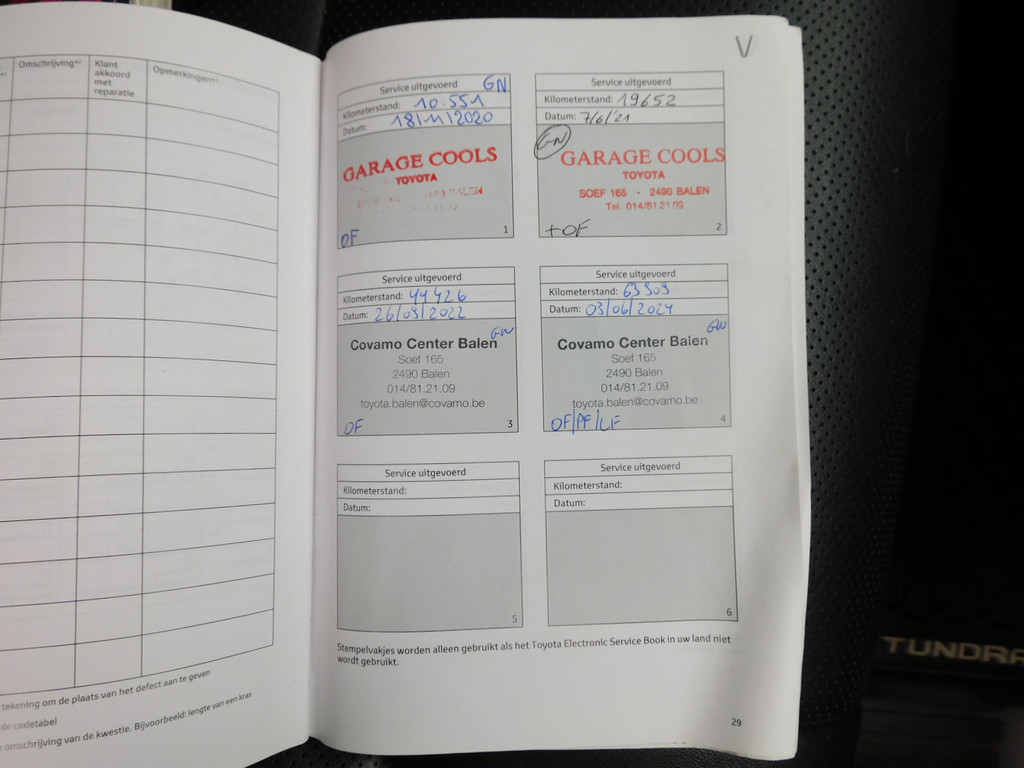 Omschrijving*²
Klant
akkoord
met
reparatie
Opmerkingen*³
tekening om de plaats van het defect aan te geven
de codetabel
omschrijving van de kwestie. Bijvoorbeeld: lengte van een kras
V
Service uitgevoerd GN
Kilometerstand: 10.551
Datum: 18/11/2020
GARAGE COOLS
TOYOTA
BALEN
OF
1
Service uitgevoerd
Kilometerstand: 19652
Datum: 7/6/21
GN
GARAGE COOLS
TOYOTA
SOEF 165 - 2490 BALEN
Tel. 014/81.21.09
+OF
2
Service uitgevoerd
Kilometerstand: 44426
Datum: 26/09/2022
GN
Covamo Center Balen
Soef 165
2490 Balen
014/81.21.09
toyota.balen@covamo.be
OF
3
Service uitgevoerd
Kilometerstand: 63909
Datum: 03/06/2024
GN
Covamo Center Balen
Soef 165
2490 Balen
014/81.21.09
toyota.balen@covamo.be
OF/PF/LF
4
Service uitgevoerd
Kilometerstand:
Datum:
5
Service uitgevoerd
Kilometerstand:
Datum:
6
Stempelvakjes worden alleen gebruikt als het Toyota Electronic Service Book in uw land niet
wordt gebruikt.
29
TUNDRA